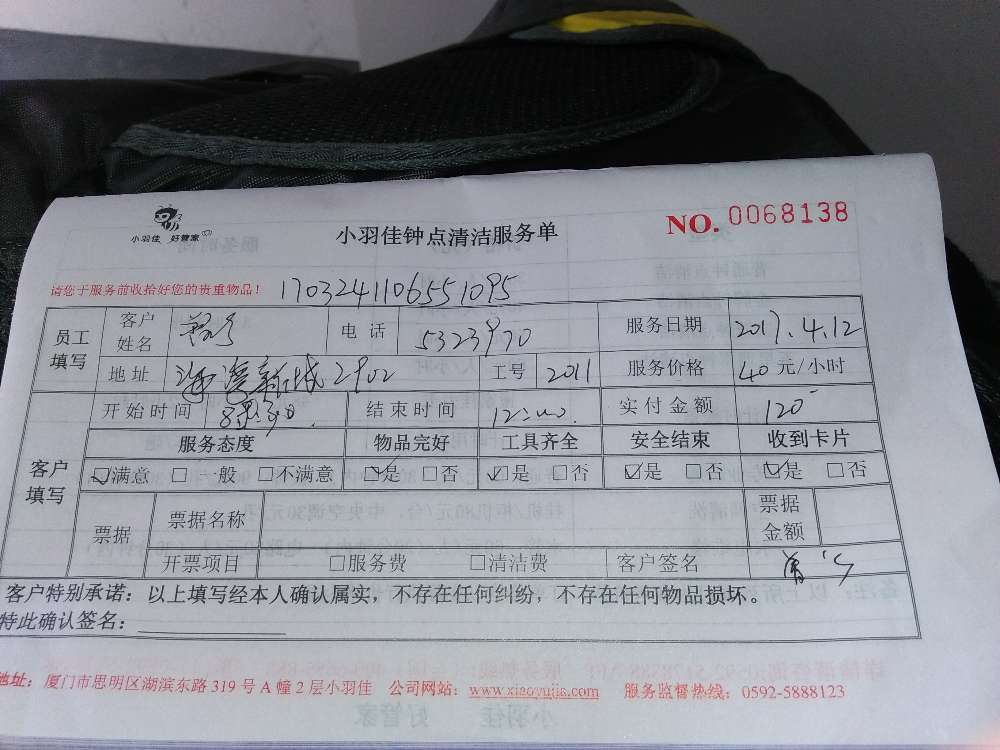 小羽佳 好管家
小羽佳钟点清洁服务单
NO. 0068138
请您于服务前收拾好您的贵重物品！ 1703241106551095
员工填写 客户姓名 电话 5323970 服务日期 2017.4.12
地址 海湾新城2902 工号 2011 服务价格 40元/小时
客户填写
开始时间 结束时间 12:00 实付金额 120
服务态度 物品完好 工具齐全 安全结束 收到卡片
☑满意 □一般 □不满意 ☑是 □否 ☑是 □否 ☑是 □否 ☑是 □否
票据 票据名称 票据金额
开票项目 □服务费 □清洁费 客户签名
客户特别承诺：以上填写经本人确认属实，不存在任何纠纷，不存在任何物品损坏。
特此确认签名：
地址：厦门市思明区湖滨东路319号A幢2层小羽佳 公司网站：www.xiaoyujia.com 服务监督热线：0592-5888123